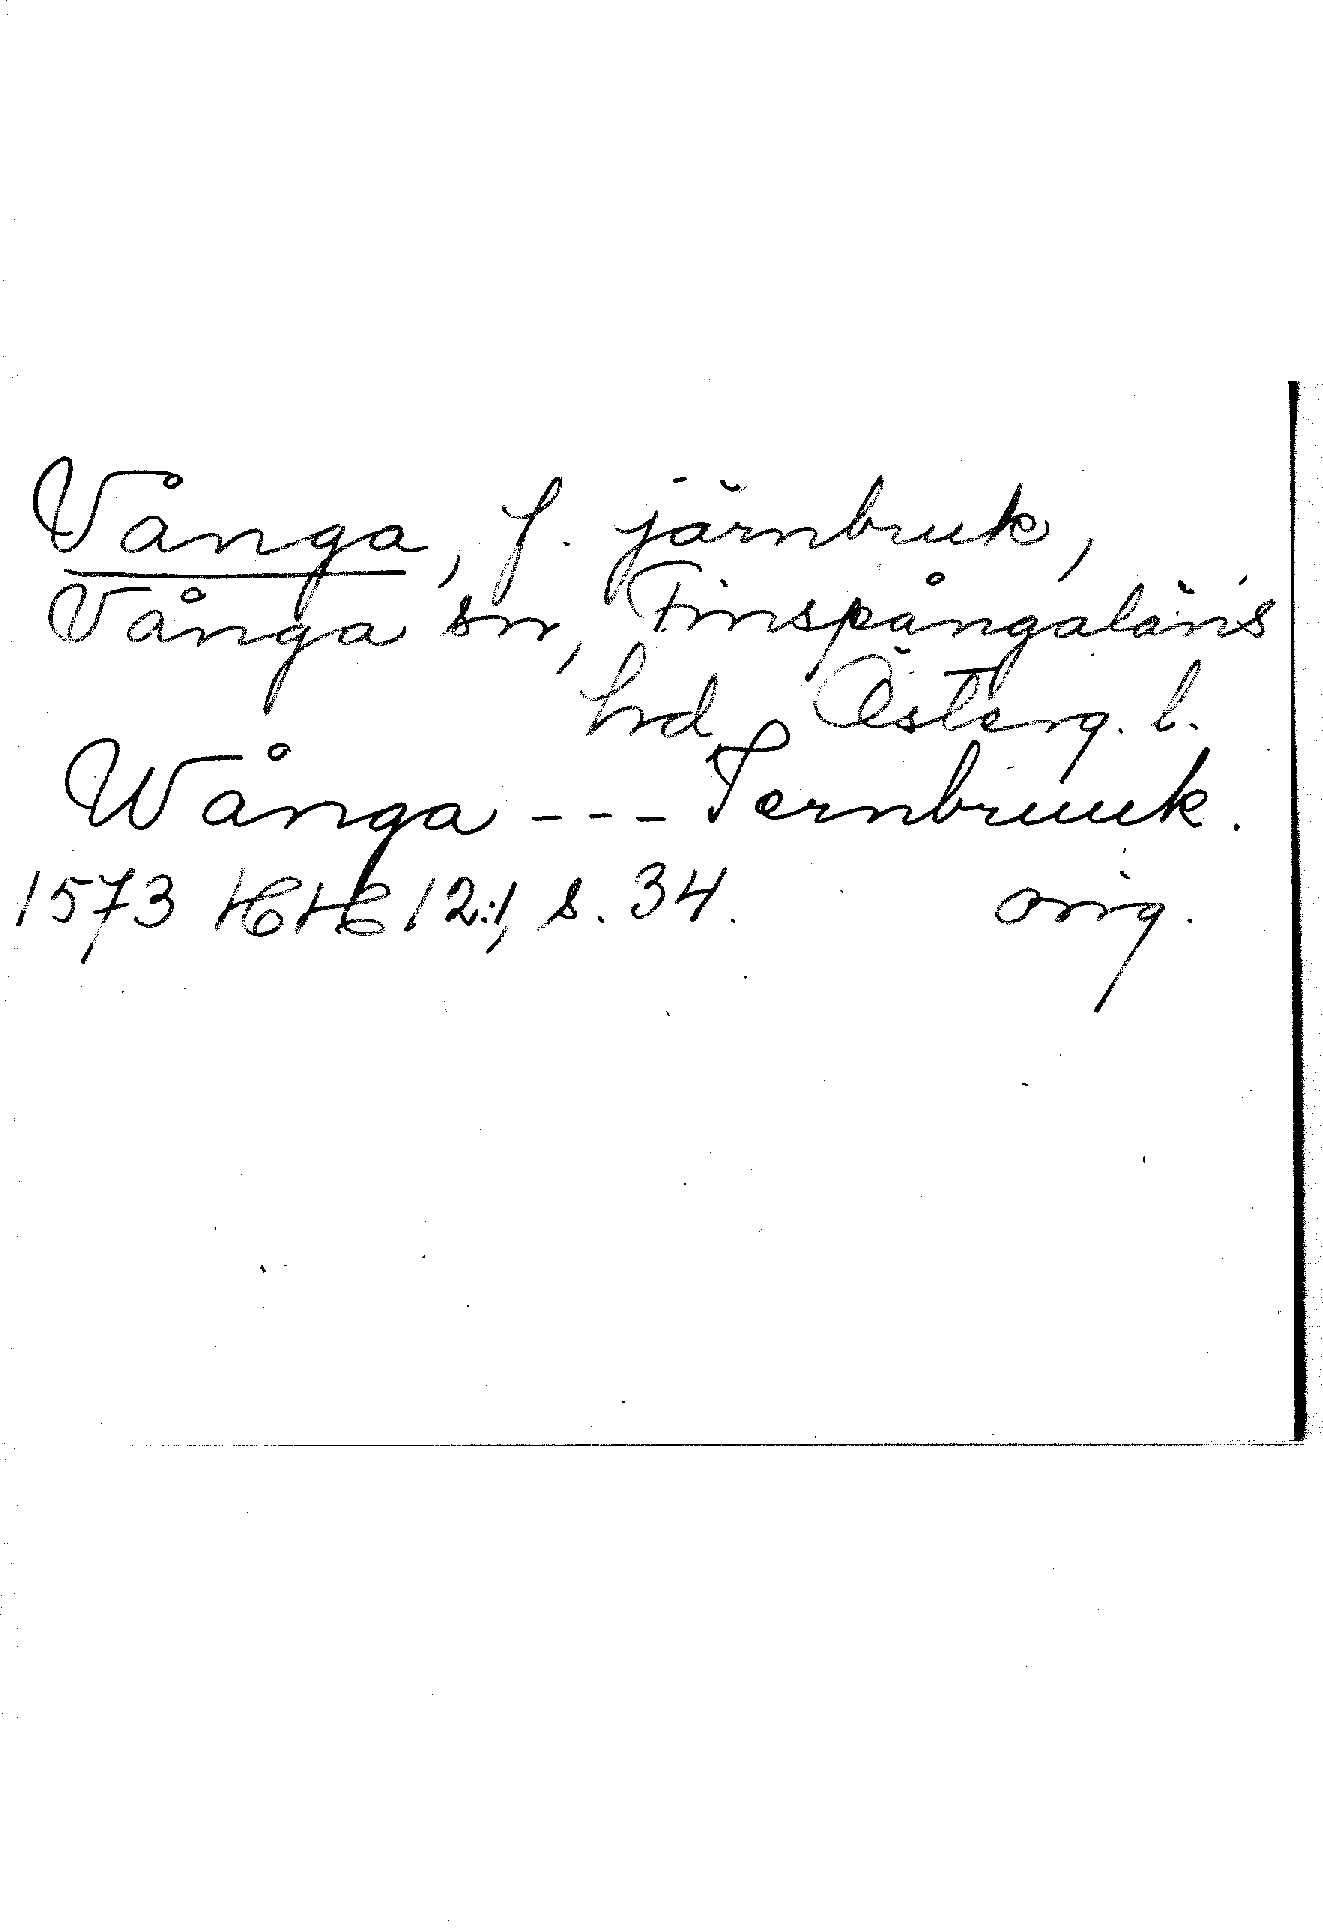 Vånga, f. järnbruk,
Vånga sn, Finspångaläns
hrd, Österg. l.
Wånga --- Jernbruuk.
1573 HH 12:1, s. 34. orig.